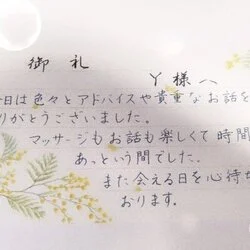 御礼
Y様へ
今日は色々とアドバイスや貴重なお話を
りがとうございました。
マッサージもお話も楽しくて時間
あっという間でした。
また会える日を心待ち
おります。